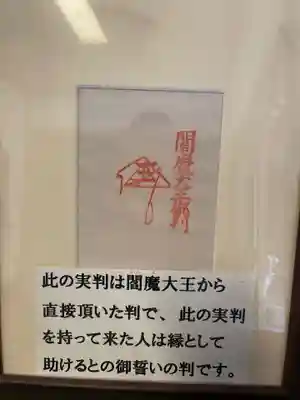 閻魔大王御判
此の実判は閻魔大王から
直接頂いた判で、此の実判
を持って来た人は縁として
助けるとの御誓いの判です。